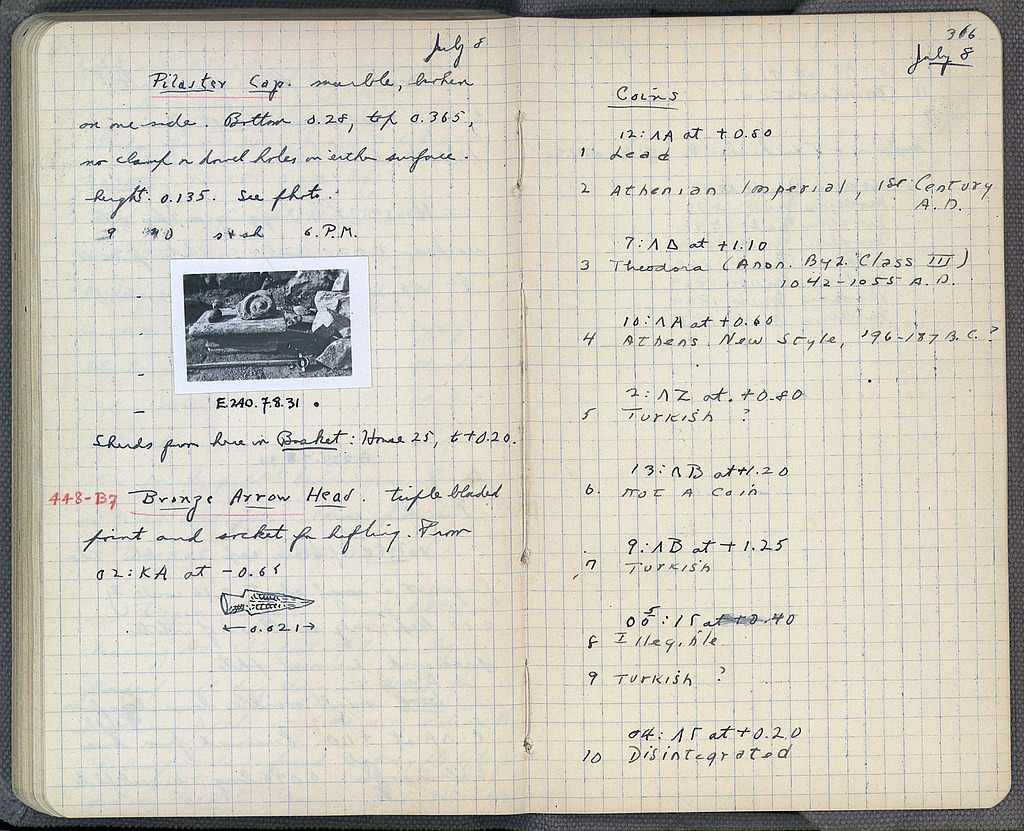 July 8
Pilaster Cap. marble, broken
on one side. Bottom 0.28, top 0.365,
no clamp or dowel holes on either surface.
height. 0.135. See photo.
9 6. P.M.
E240.7.8.31
Sherds from here in Basket: House 25, to +0.20.
448-B7 Bronze Arrow Head. triple bladed
point and socket for hafting. From
02:KA at -0.65
0.021
366
July 8
Coins
12:ΛA at +0.80
1 Lead
2 Athenian Imperial, 1st Century
A.D.
7:ΛΔ at +1.10
3 Theodora (Anon. Byz. Class III)
1042-1055 A.D.
10:ΛA at +0.60
4 Athens New Style, 196-187 B.C.?
2:ΛZ at +0.80
5 Turkish ?
13:ΛB at +1.20
6. Not A Coin
9:ΛB at +1.25
7 Turkish
at +0.40
8 Illegible
9 Turkish ?
04:ΛΓ at +0.20
10 Disintegrated